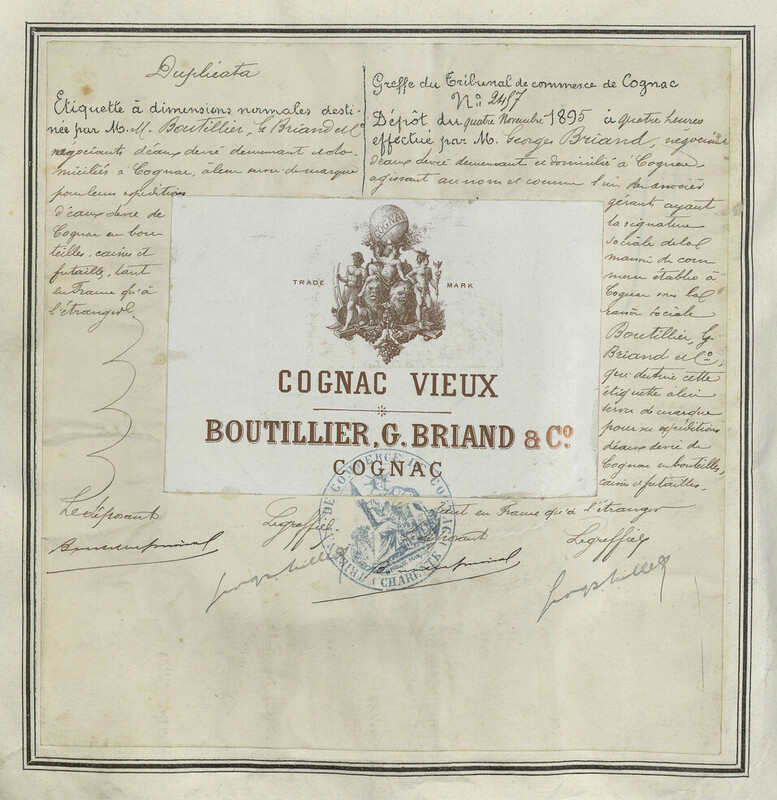 Duplicata
Etiquette à dimensions normales desti-
née par M. M. Boutillier, G. Briand et Cº
négociants d'eaux de vie demeurant et do-
miciliés à Cognac, à leur servir de marque
pour leurs expéditions
d'eaux de vie de
Cognac en bou-
teilles, caisses et
futailles, tant
en France qu'à
l'étranger.
Le déposant
Le greffier
Greffe du Tribunal de commerce de Cognac
Nº 2457
Dépôt du quatre Novembre 1895 à quatre heures
effectué par M. Georges Briand, négociant
d'eaux de vie demeurant et domicilié à Cognac
agissant au nom et comme l'un des associés
gérants ayant
la signature
sociale de la
maison de com-
merce établie à
Cognac sous la
raison sociale
Boutillier, G.
Briand et Cº,
qui destine cette
étiquette à leur
servir de marque
pour ses expéditions
d'eaux de vie de
Cognac en bouteilles,
caisses et futailles,
tant en France qu'à l'étranger
Le déposant
Le greffier
COGNAC
TRADE MARK
COGNAC VIEUX
BOUTILLIER, G. BRIAND & Cº
COGNAC
TRIBUNAL DE COMMERCE DE COGNAC
(CHARENTE)